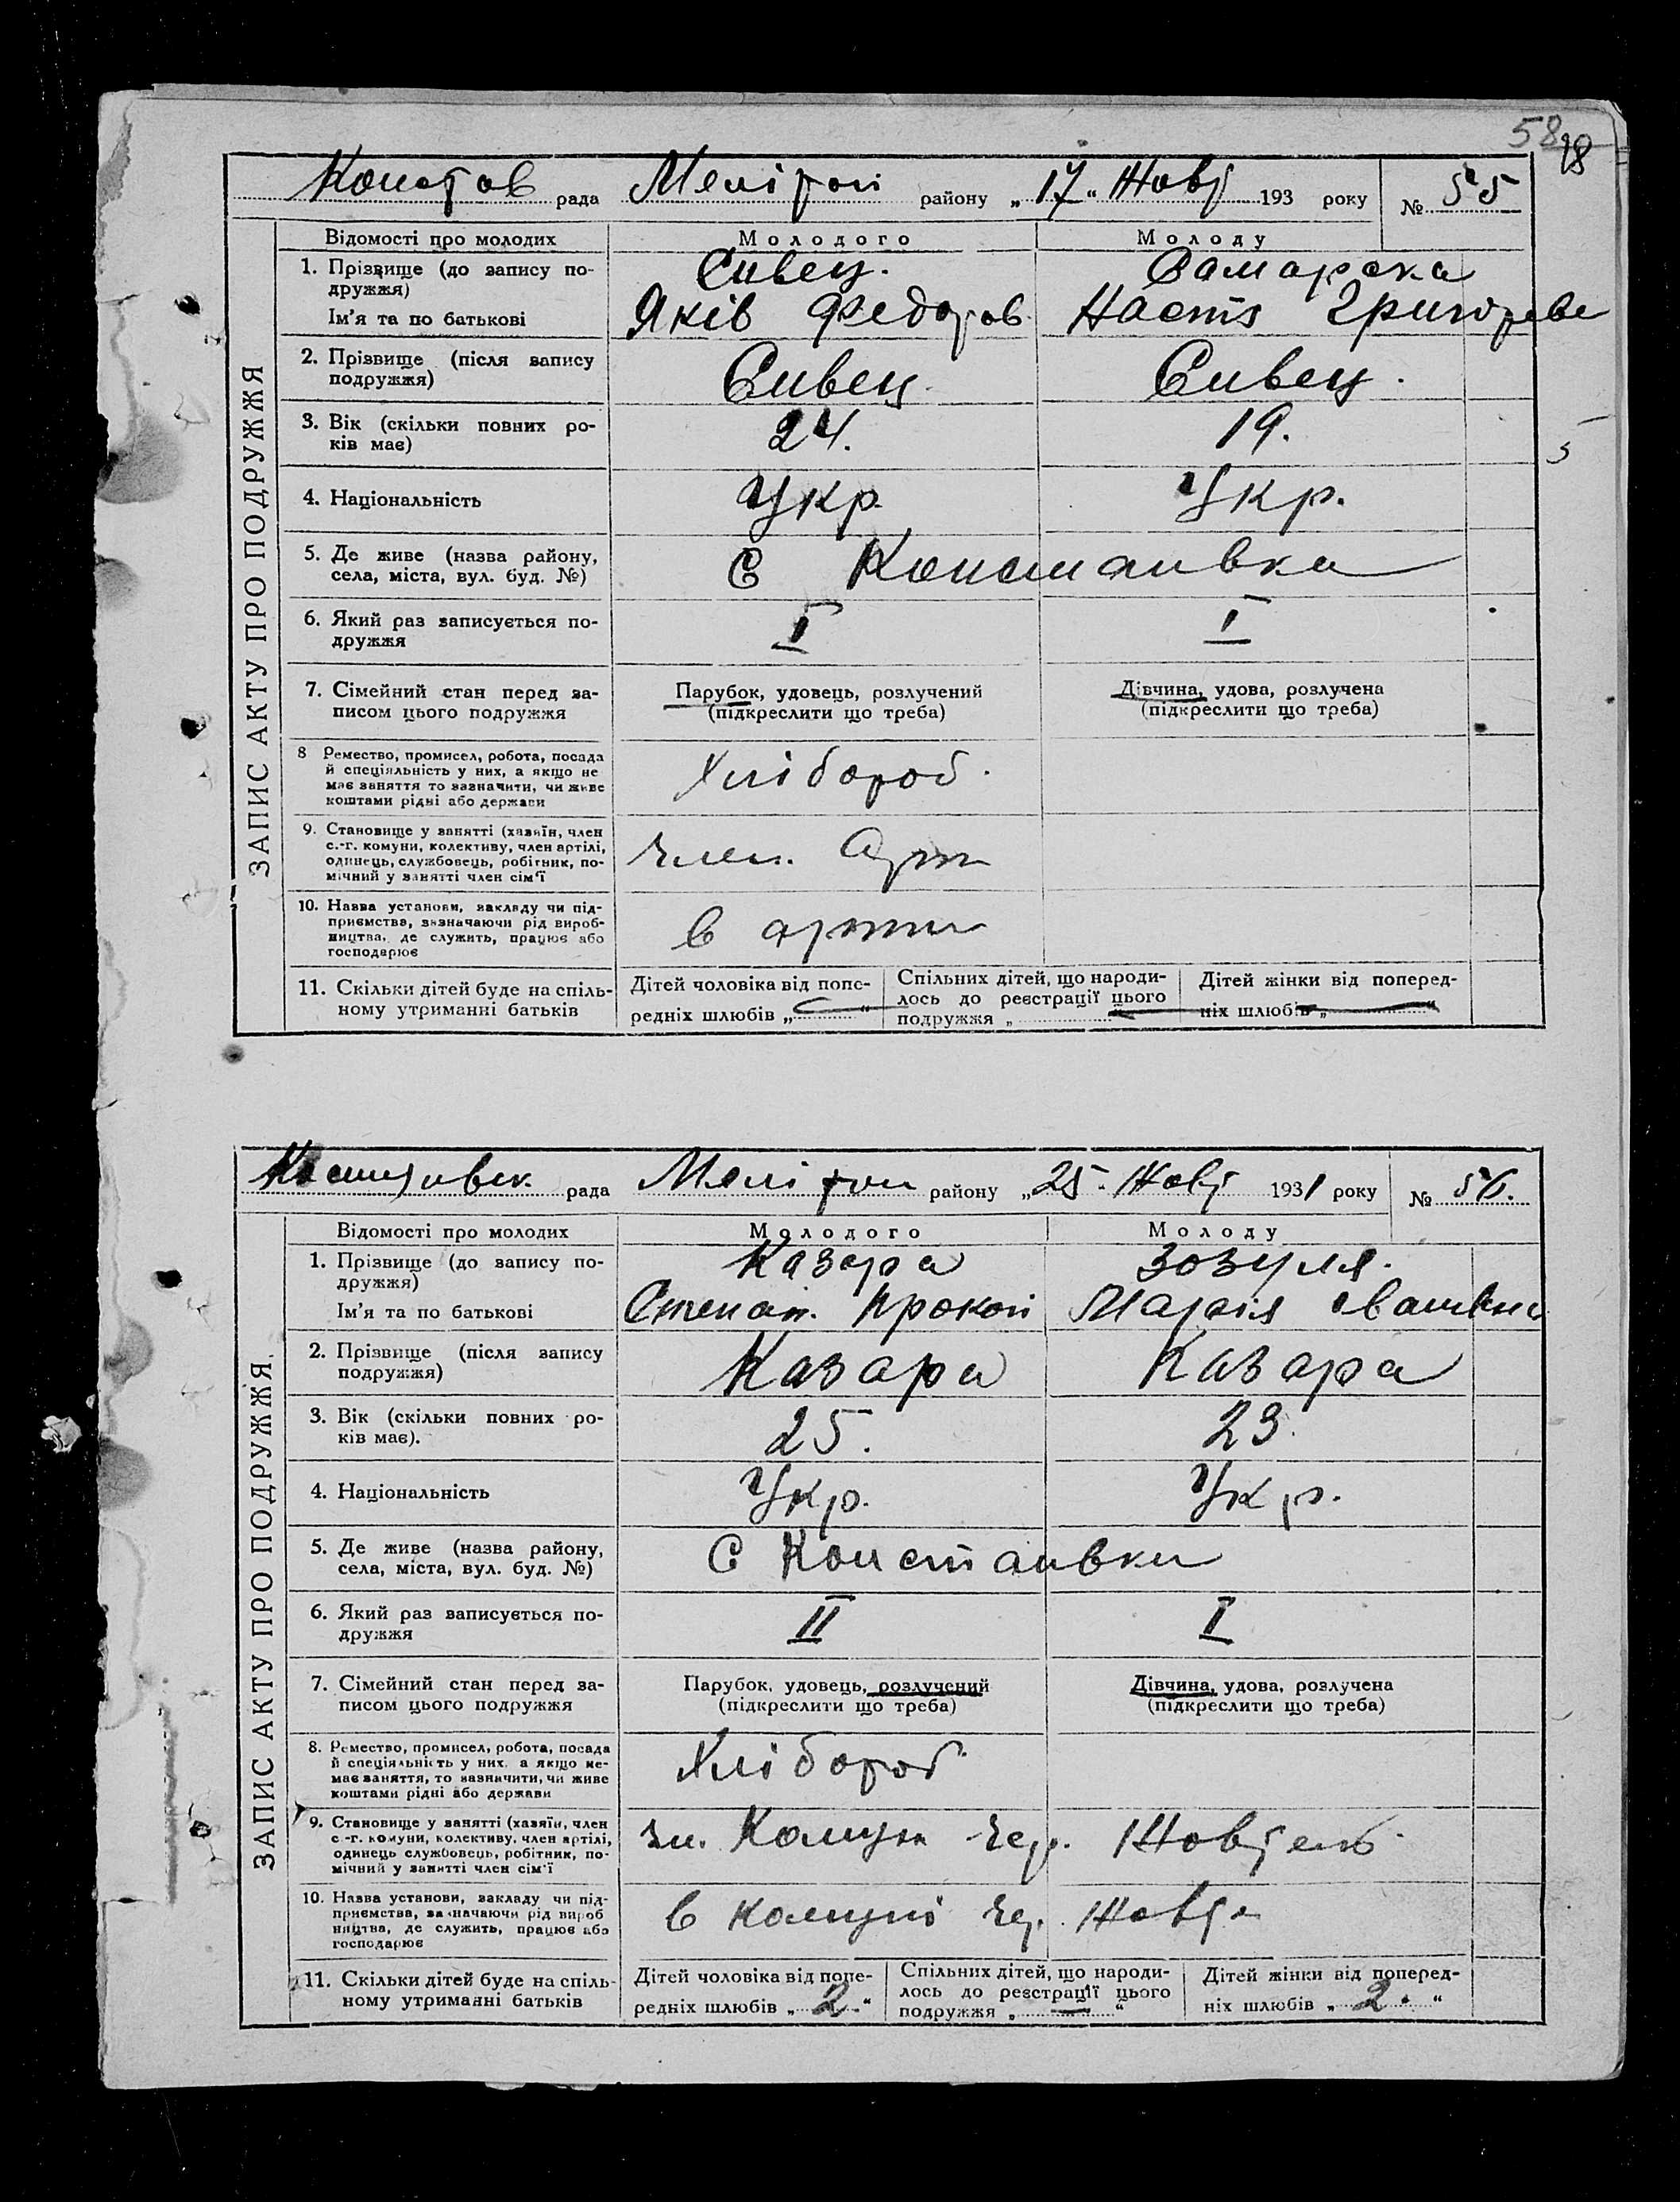 58 98
Констов рада Мелітоп району „17“ Жовт 193 року № 55
ЗАПИС АКТУ ПРО ПОДРУЖЖЯ
Відомості про молодих Молодого Молоду
1. Прізвище (до запису по-
дружжя)
Сивец. Самарска
Ім’я та по батькові Яків Федоров Настя Григореве
2. Прізвище (після запису
подружжя)
Сивец. Сивец.
3. Вік (скільки повних ро-
ків має)
24. 19.
5
4. Національність Укр. Укр.
5. Де живе (назва району,
села, міста, вул. буд. №)
С Констанвка
6. Який раз записується по-
дружжя
I I
7. Сімейний стан перед за-
писом цього подружжя
Парубок, удовець, розлучений
(підкреслити що треба)
Дівчина, удова, розлучена
(підкреслити що треба)
8 Ремество, промисел, робота, посада
й спеціяльність у них, а якщо не
має заняття то зазначити, чи живе
коштами рідні або держави
Хлібороб.
9. Становище у занятті (хазяїн, член
с.-г. комуни, колективу, член артілі,
одинець, службовець, робітник, по-
мічний у занятті член сім’ї
член. Арт
10. Назва установи, закладу чи під-
приємства, зазначаючи рід вироб-
ництва, де служить, працює або
господарює
в артти
11. Скільки дітей буде на спіль-
ному утриманні батьків
Дітей чоловіка від попе-
редніх шлюбів „ “
Спільних дітей, що народи-
лось до реєстрації цього
подружжя „
Дітей жінки від поперед-
ніх шлюбів „ “
рада Мелітоп району „25. Жовт 1931 року № 56.
ЗАПИС АКТУ ПРО ПОДРУЖЖЯ.
Відомості про молодих Молодого Молоду
1. Прізвище (до запису по-
дружжя)
Казара Зозуля.
Ім’я та по батькові Степан. Прокоп Марія
2. Прізвище (після запису
подружжя)
Казара Казара
3. Вік (скільки повних ро-
ків має).
25. 23.
4. Національність Укр. Укр.
5. Де живе (назва району,
села, міста, вул. буд. №)
С Констанвки
6. Який раз записується по-
дружжя
II I
7. Сімейний стан перед за-
писом цього подружжя
Парубок, удовець, розлучений
(підкреслити що треба)
Дівчина, удова, розлучена
(підкреслити що треба)
8. Ремество, промисел, робота, посада
й спеціяльність у них, а якщо не-
має заняття, то зазначити, чи живе
коштами рідні або держави
Хлібороб
9. Становище у занятті (хазяїн, член
с.-г. комуни, колективу, член артілі,
одинець службовець, робітник, по-
мічний у занятті член сім’ї
чл. Комуни Чер. Жовтень.
10. Назва установи, закладу чи під-
приємства, зазначаючи рід вироб
ництва, де служить, працює або
господарює
в комуні Чер. Жовте
11. Скільки дітей буде на спіль-
ному утриманні батьків
Дітей чоловіка від попе-
редніх шлюбів „ 2. “
Спільних дітей, що народи-
лось до реєстрації цього
подружжя „ — “
Дітей жінки від поперед-
ніх шлюбів „ 2. “